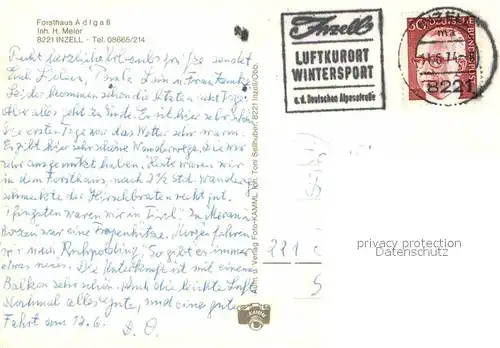 Forsthaus Adlgaß
Inh. H. Meier
8221 INZELL - Tel. 08665/214
Recht herzliche Urlaubsgrüße sendet
Euch Lieben,
Leider kommen schon die letzten acht Tage.
Aber alles geht zu Ende. Es ist hier sehr schön
Die ersten Tage war das Wetter sehr warm.
Es gibt hier sehr schöne Wanderwege, die wir
sehr ausgenutzt haben. Heute waren wir
in dem Forsthaus, nach 2 1/2 Std Wanderung
schmeckte der Hirschbraten recht gut.
Pfingsten waren wir in Tirol. In Meran
Bozen war eine Tropenhitze. Morgen fahren
wir nach Ruhpolding. So gibt es immer
etwas neues. Die Unterkunft ist mit einem
Balkon sehr schön. Auch die leichte Luft.
Nochmal alles gute, und eine gute
Fahrt am 12.6.
Aufn. u. Verlag Foto-KAMML, Inh. Toni Seilhuber, 8221 Inzell/Obb.
KAMML
Inzell
LUFTKURORT
WINTERSPORT
a.d. Deutschen Alpenstraße
8221
30
DEUTSCHE BUNDESPOST
221
privacy protection
www.ansichtskarten-center.de